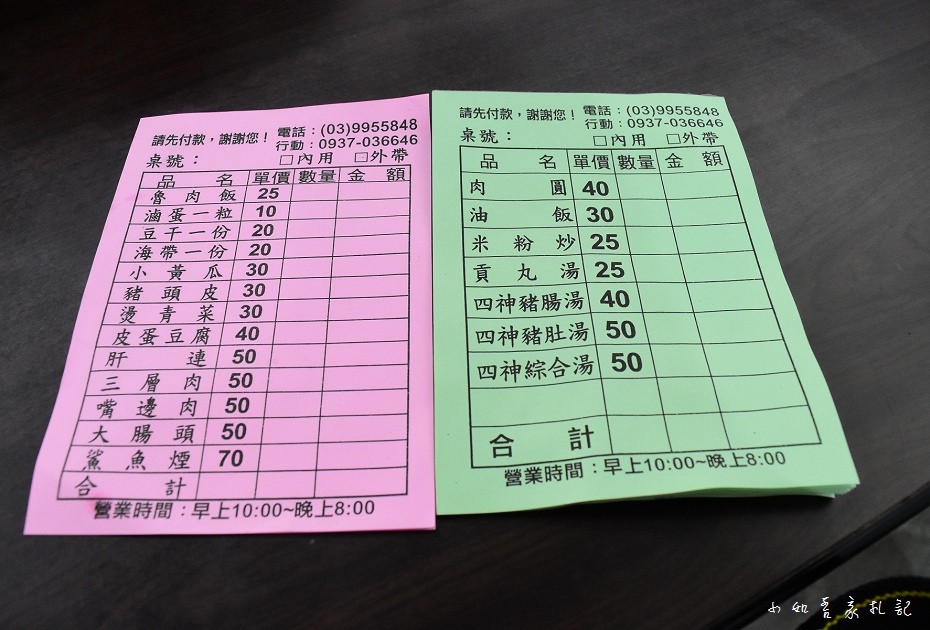 請先付款，謝謝您！ 電話：(03)9955848
行動：0937-036646
桌號： □內用 □外帶
品名 單價 數量 金額
魯肉飯 25
滷蛋一粒 10
豆干一份 20
海帶一份 20
小黃瓜 30
豬頭皮 30
燙青菜 30
皮蛋豆腐 40
肝連 50
三層肉 50
嘴邊肉 50
大腸頭 50
鯊魚煙 70
合計
營業時間：早上10:00~晚上8:00
請先付款，謝謝您！ 電話：(03)9955848
行動：0937-036646
桌號： □內用 □外帶
品名 單價 數量 金額
肉圓 40
油飯 30
米粉炒 25
貢丸湯 25
四神豬腸湯 40
四神豬肚湯 50
四神綜合湯 50
合計
營業時間：早上10:00~晚上8:00
小如吾家札記